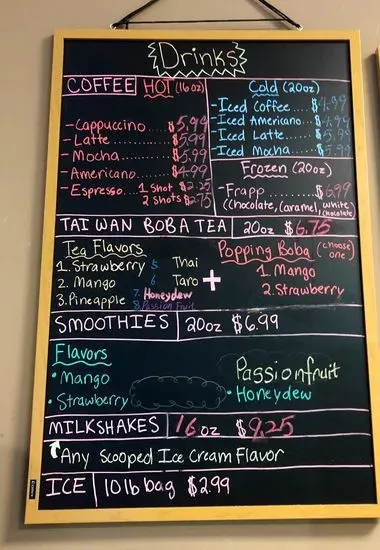 Drinks
COFFEE HOT (16oz)
- Cappuccino..... $5.99
- Latte........ $5.99
- Mocha....... $5.99
- Americano.... $4.99
- Espresso.. 1 Shot $2.25
2 Shots $2.75
Cold (20oz)
- Iced Coffee.... $4.99
- Iced Americano... $4.99
- Iced Latte.... $5.99
- Iced Mocha.... $5.99
Frozen (20oz)
- Frapp.......... $6.99
(Chocolate, Caramel, white chocolate)
TAIWAN BOBA TEA 20oz $6.75
Tea Flavors
1. Strawberry 5. Thai
2. Mango 6 Taro
3. Pineapple 7. Honeydew
8. Passion Fruit
+
Popping Boba (choose one)
1. Mango
2. Strawberry
SMOOTHIES 20oz $6.99
Flavors
• Mango
• Strawberry
Passionfruit
• Honeydew
MILKSHAKES 16oz $8.25
Any Scooped Ice Cream Flavor
ICE 10lb bag $2.99